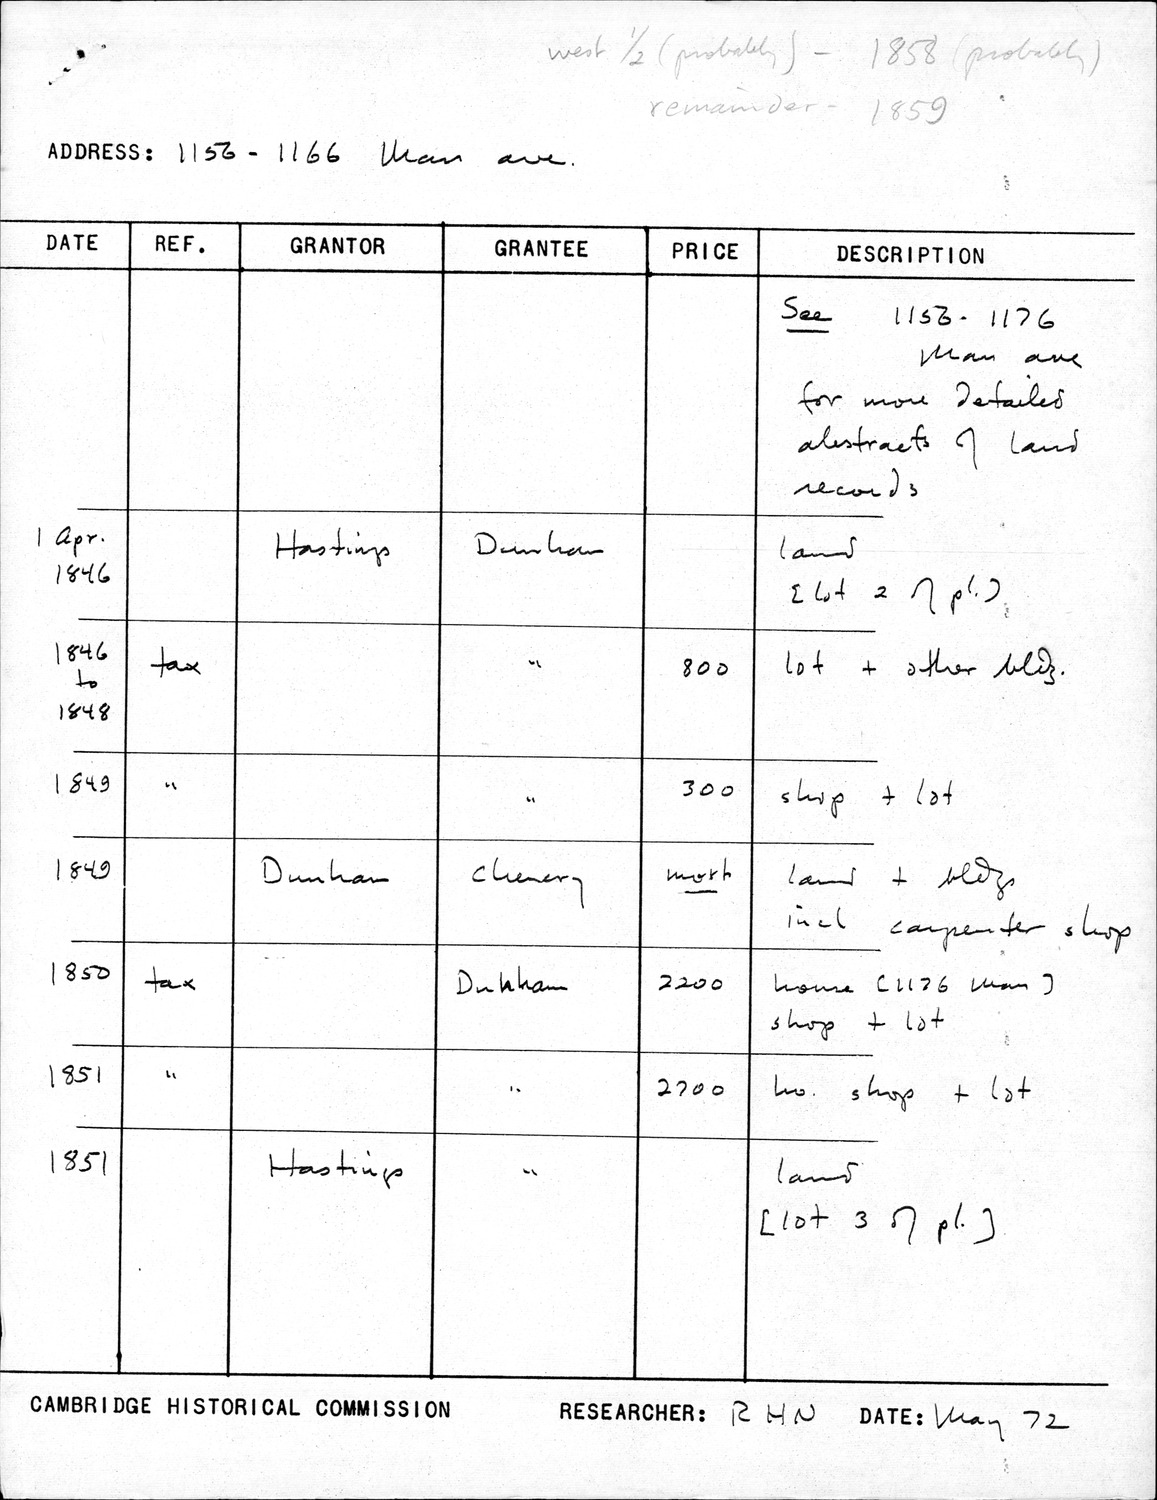 west 1/2 (probably) - 1858 (probably)
remainder - 1859
ADDRESS: 1156 - 1166 Mass ave.
DATE REF. GRANTOR GRANTEE PRICE DESCRIPTION
See 1156 - 1176
Mass ave
for more detailed
abstracts of land
records
1 Apr. 1846 Hastings Dunham land
[lot 2 of pl.]
1846 to 1848 tax " 800 lot + other bldg.
1849 " " 300 shop + lot
1849 Dunham Chenery mort land + bldgs
incl carpenter shop
1850 tax Dunham 2200 house [1176 Mass]
shop + lot
1851 " " 2700 ho. shop + lot
1851 Hastings " land
[lot 3 of pl.]
CAMBRIDGE HISTORICAL COMMISSION RESEARCHER: RHN DATE: May 72